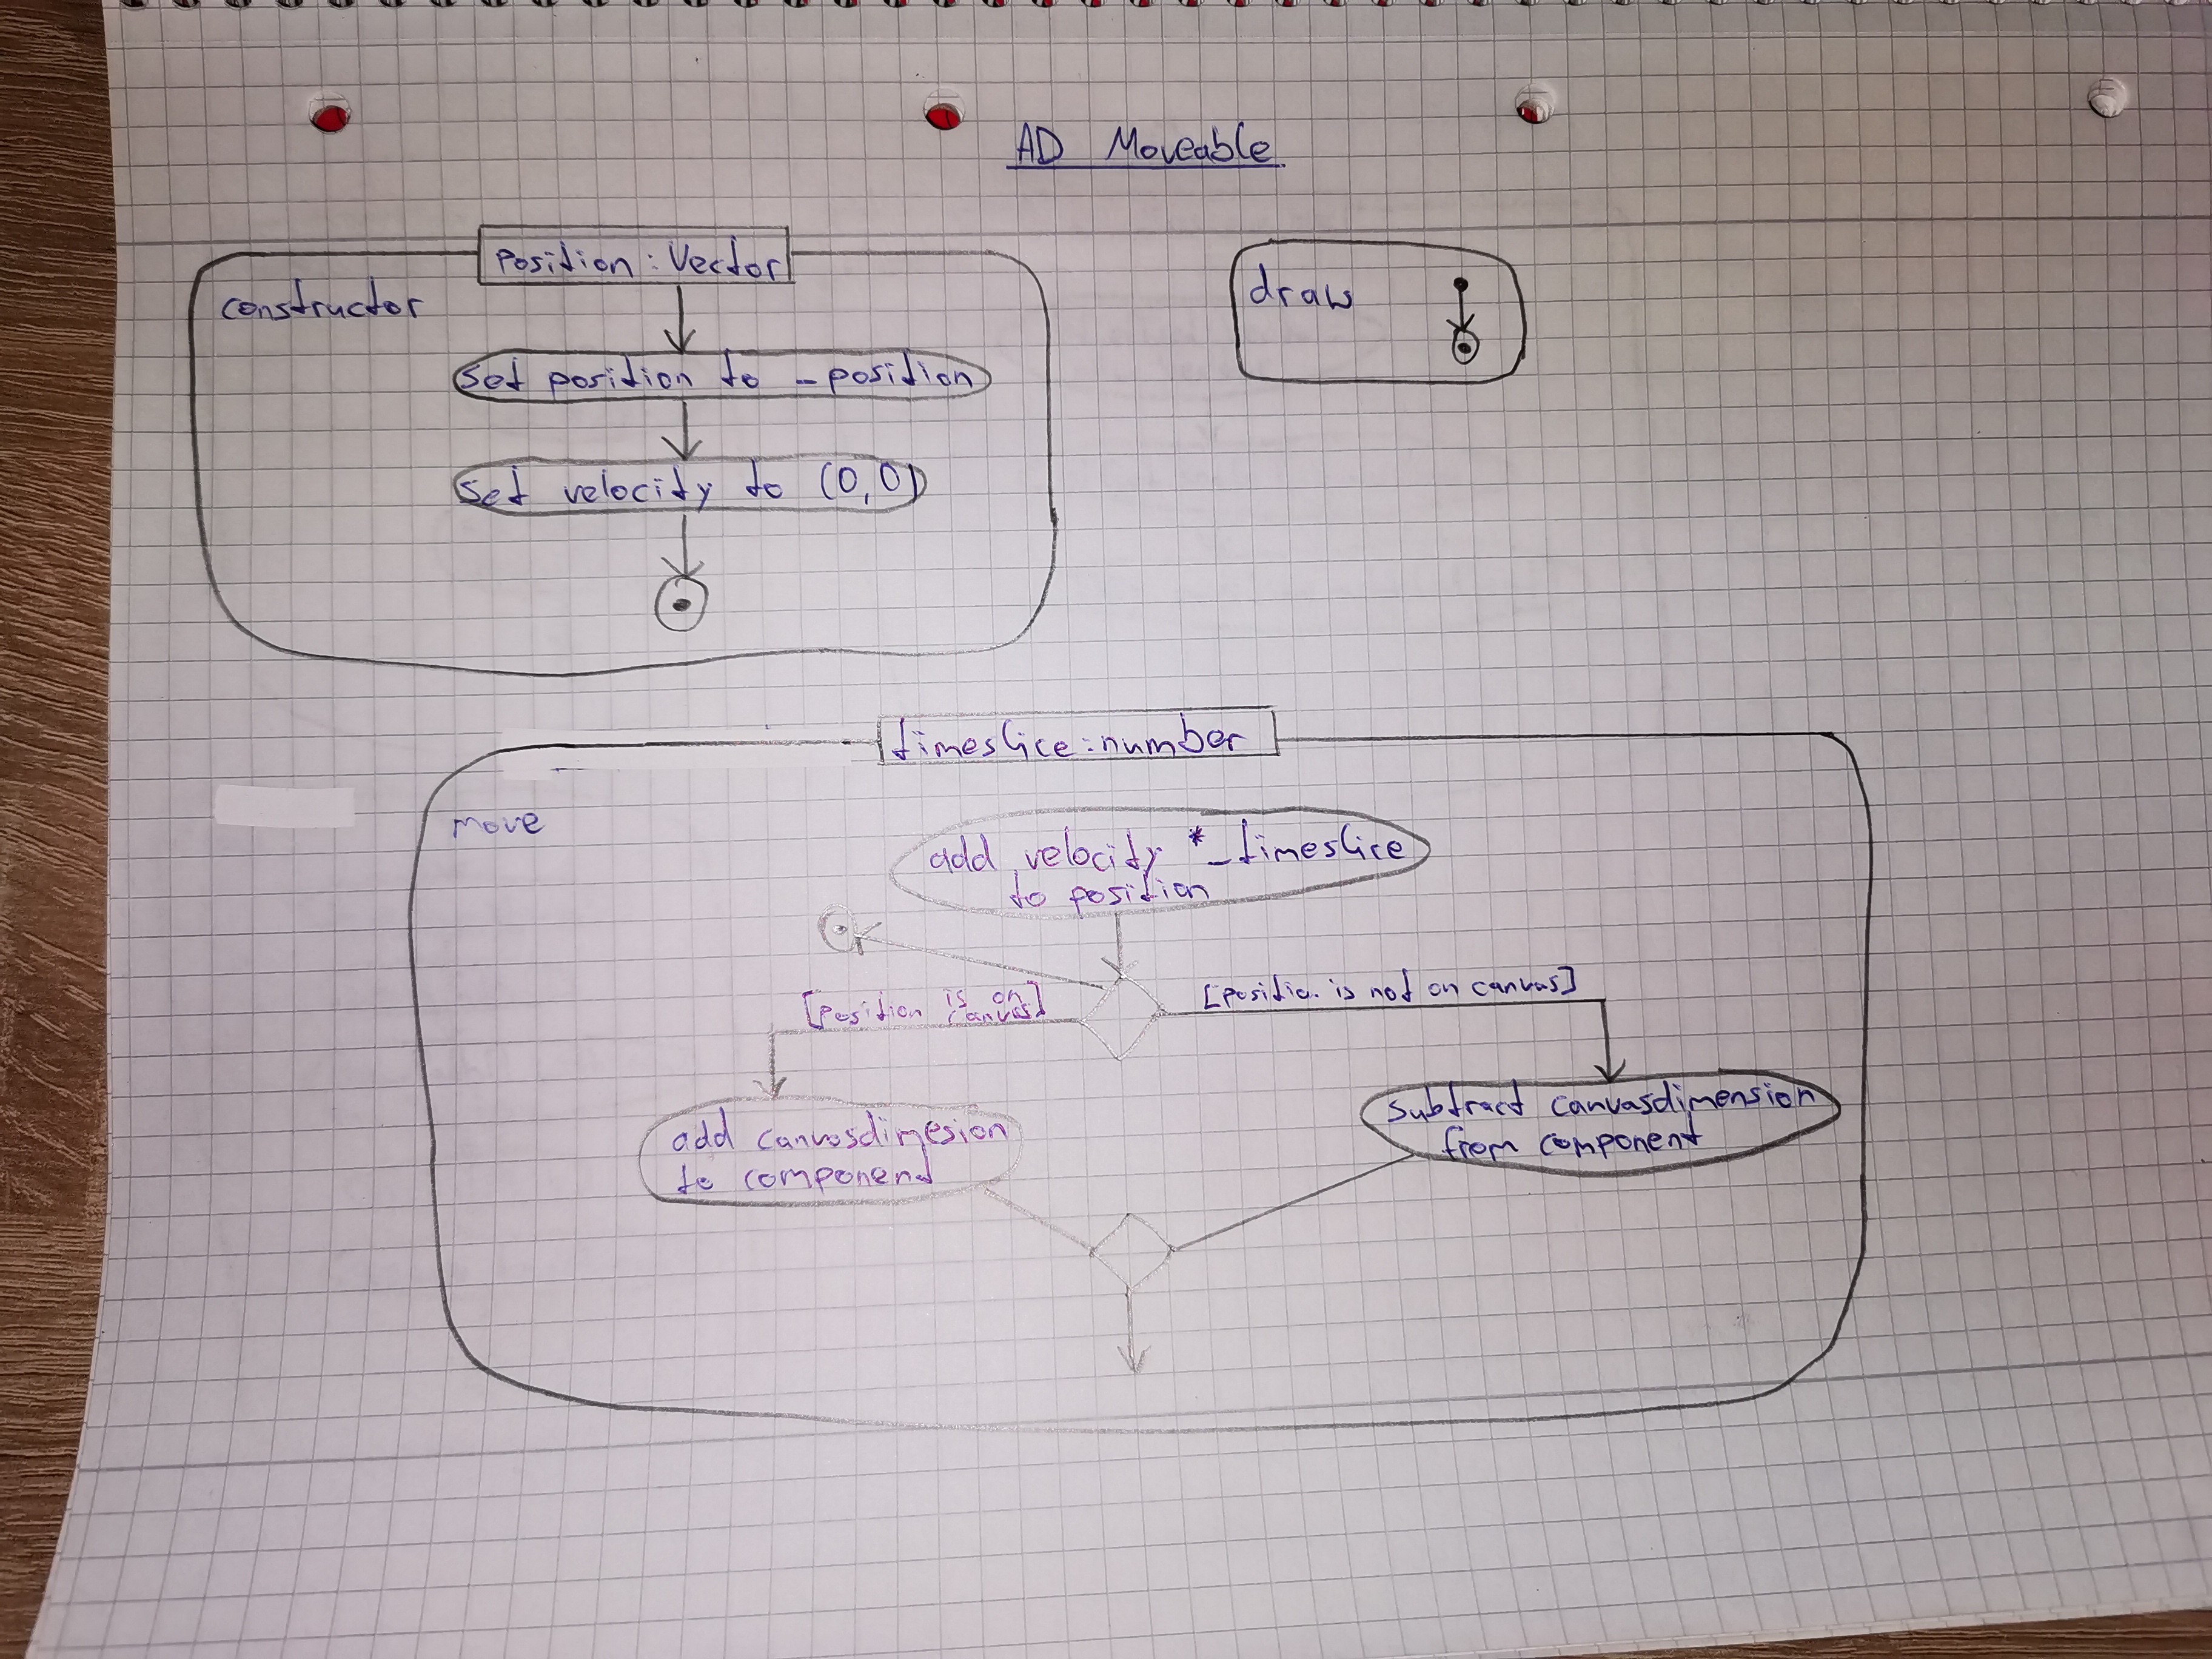 AD Moveable
Position : Vector
constructor
set position to _position
set velocity to (0,0)
draw
timeslice : number
move
add velocity * _timeslice
to position
[Position is on
canvas]
[Position is not on canvas]
add canvasdimesion
to componend
subtract canvasdimension
from component